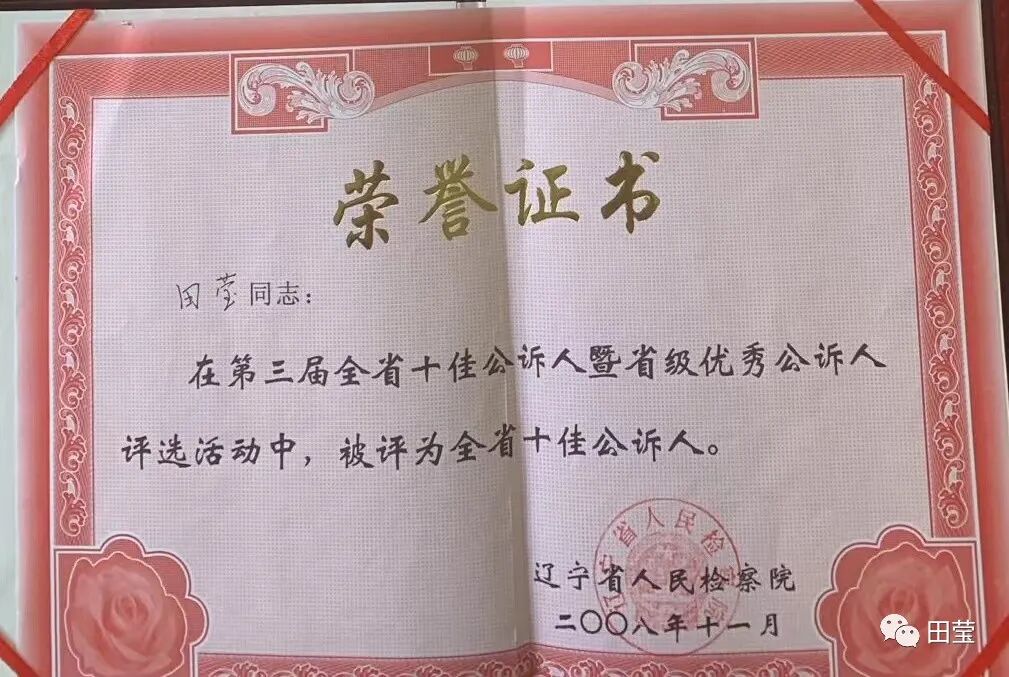 荣誉证书
田莹同志：
在第三届全省十佳公诉人暨省级优秀公诉人
评选活动中，被评为全省十佳公诉人。
辽宁省人民检察院
辽宁省人民检察院
二〇〇八年十一月
田莹